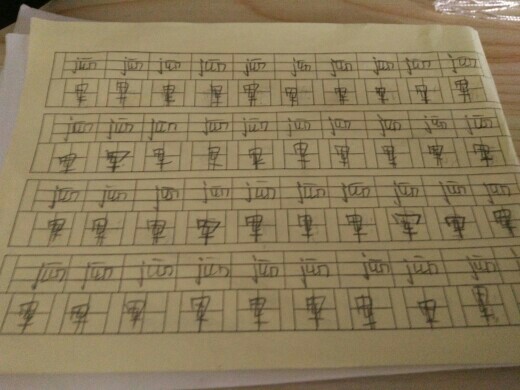 jūn jūn jūn jūn jūn jūn jūn jūn jūn jūn
军 军 军 军 军 军 军 军 军 军
jūn jūn jūn jūn jūn jūn jūn jūn jūn jūn
军 军 军 军 军 军 军 军 军 军
jūn jūn jūn jūn jūn jūn jūn jūn jūn jūn
军 军 军 军 军 军 军 军 军 军
jūn jūn jūn jūn jūn jūn jūn jūn jūn
军 军 军 军 军 军 军 军 军